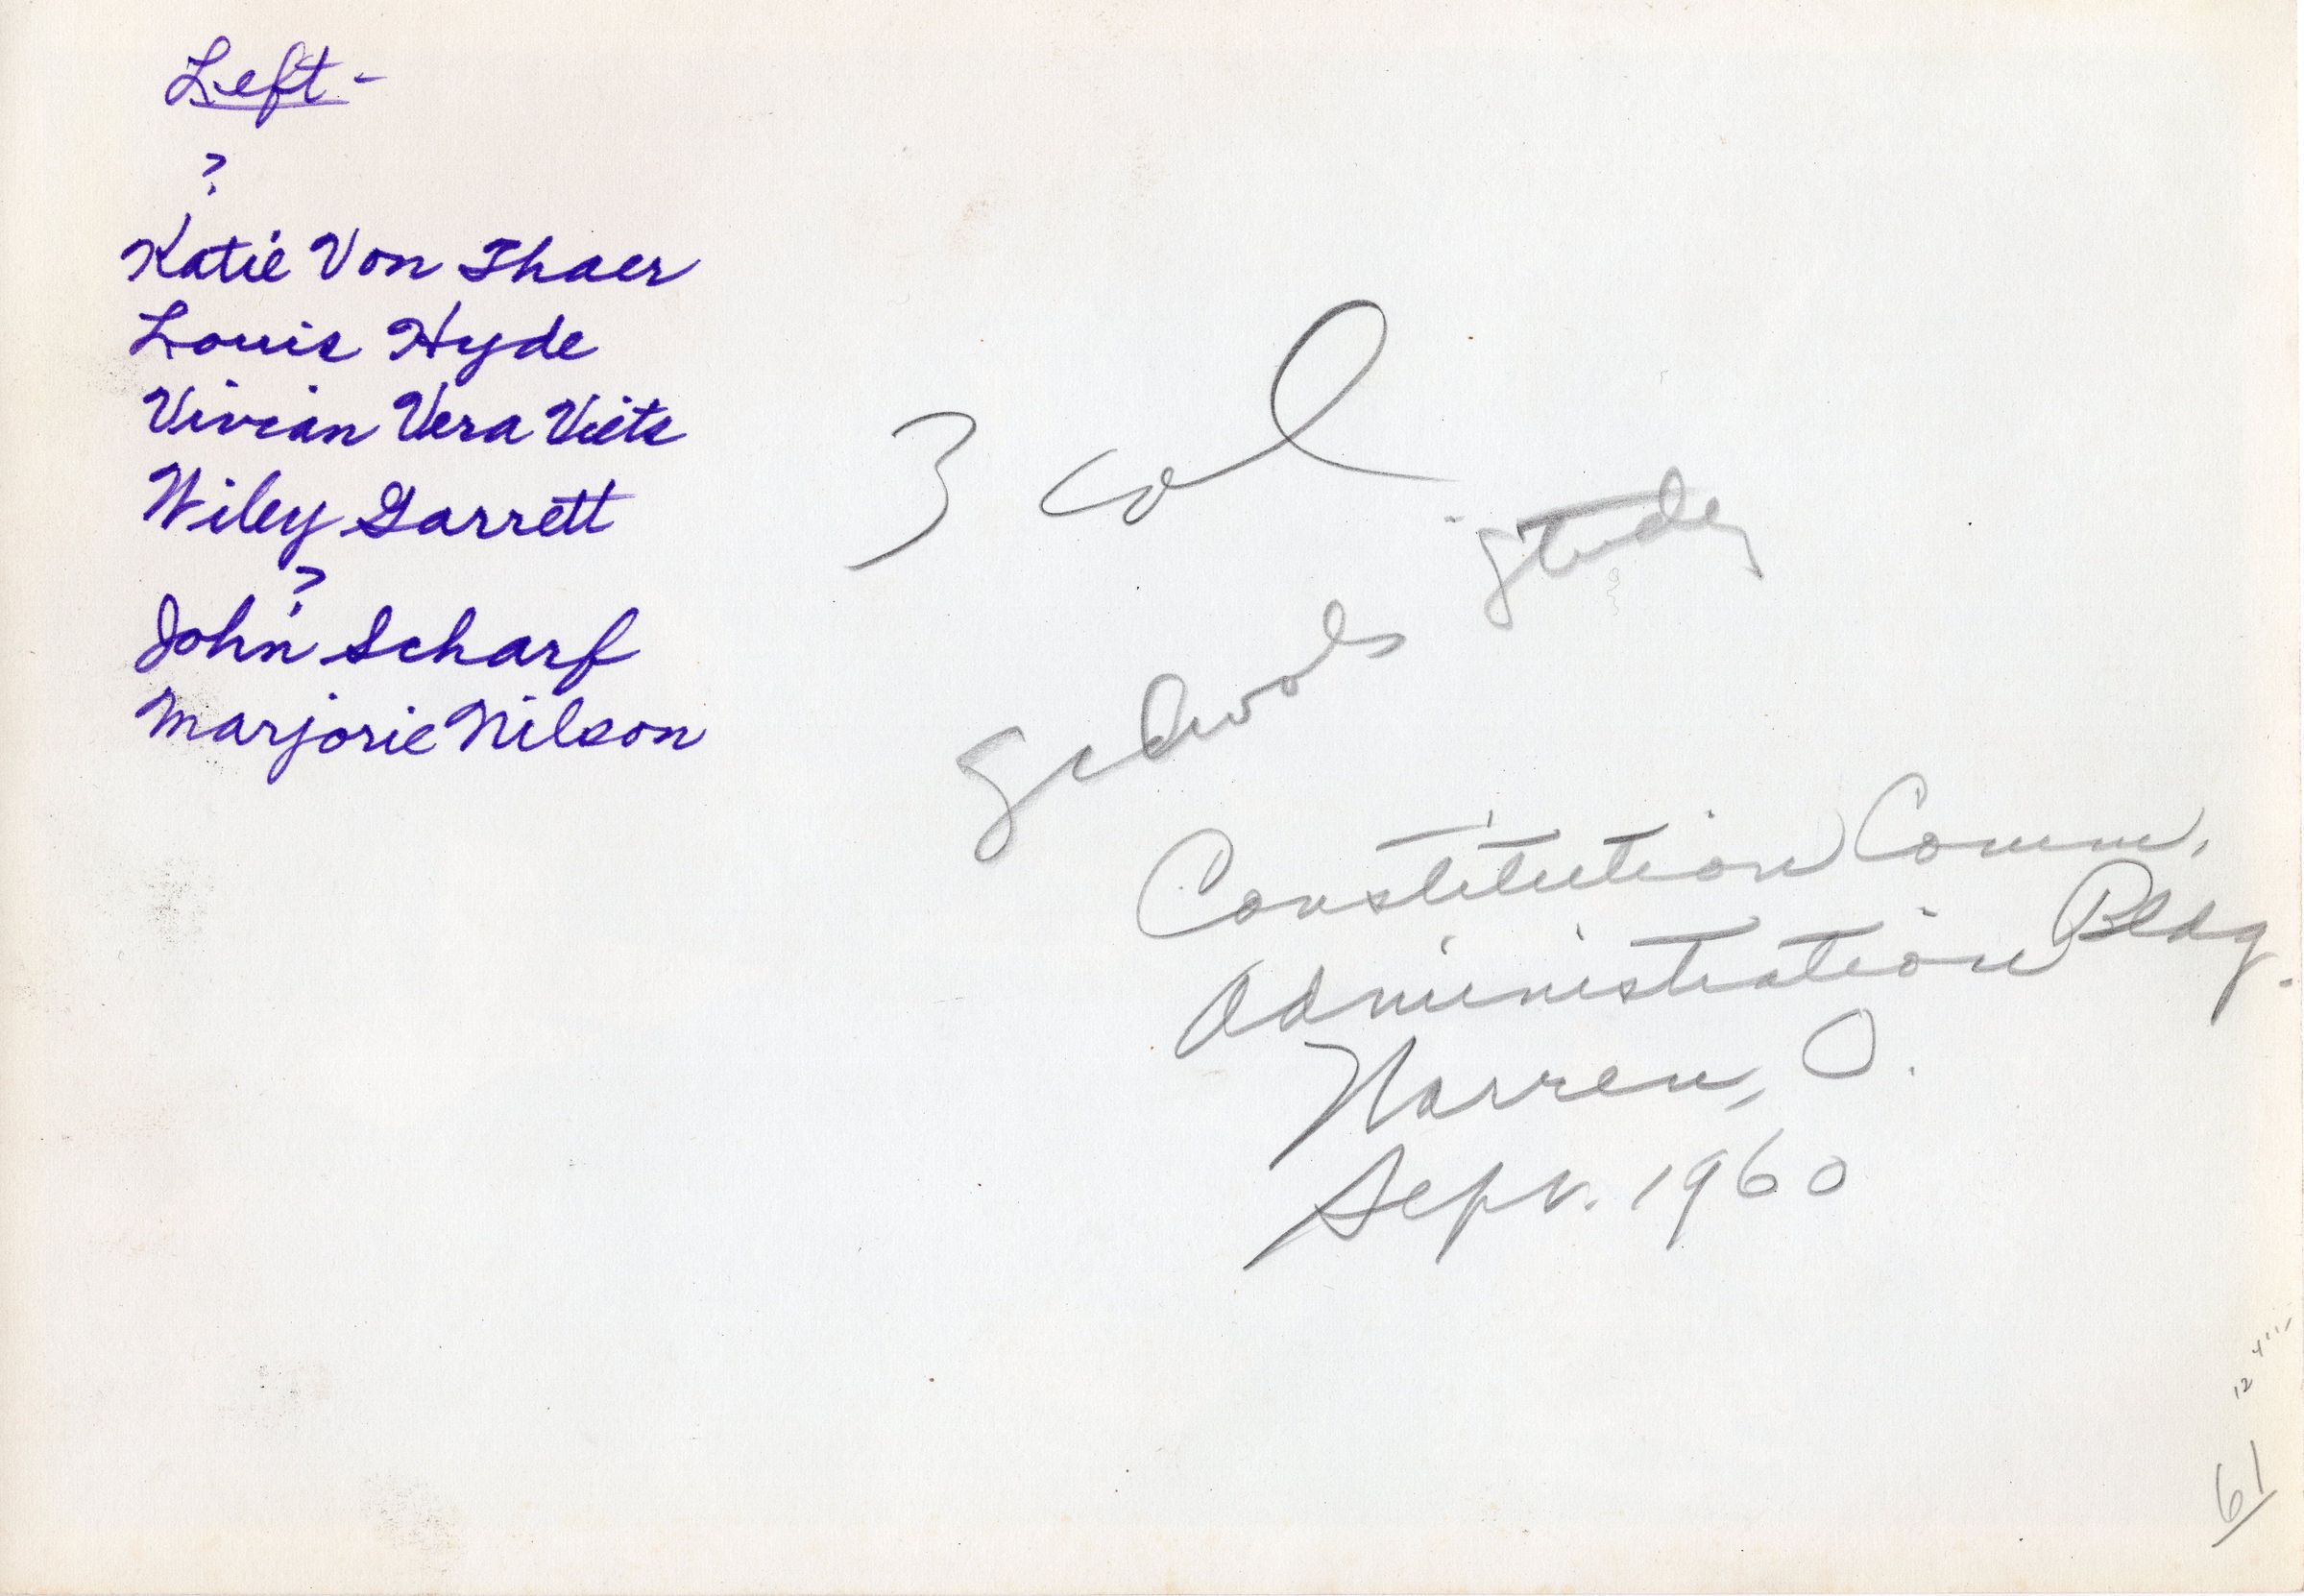 Left -
?
Katie Von Thaer
Louis Hyde
Vivian Vera Viets
Wiley Garrett
?
John Scharf
Marjorie Nilson
3 col
schools study
Constitution Comm.
Administration Bldg.
Warren, O.
Sept. 1960
12
61